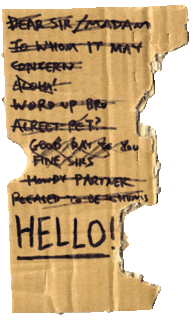 DEAR SIR/MADAM
TO WHOM IT MAY
CONCERN
ALOHA!
WORD UP BRU
ALREET PET?
GOOD DAY TO YOU
FINE SIRS
HOWDY PARTNER
PLEASED TO BE
HELLO!